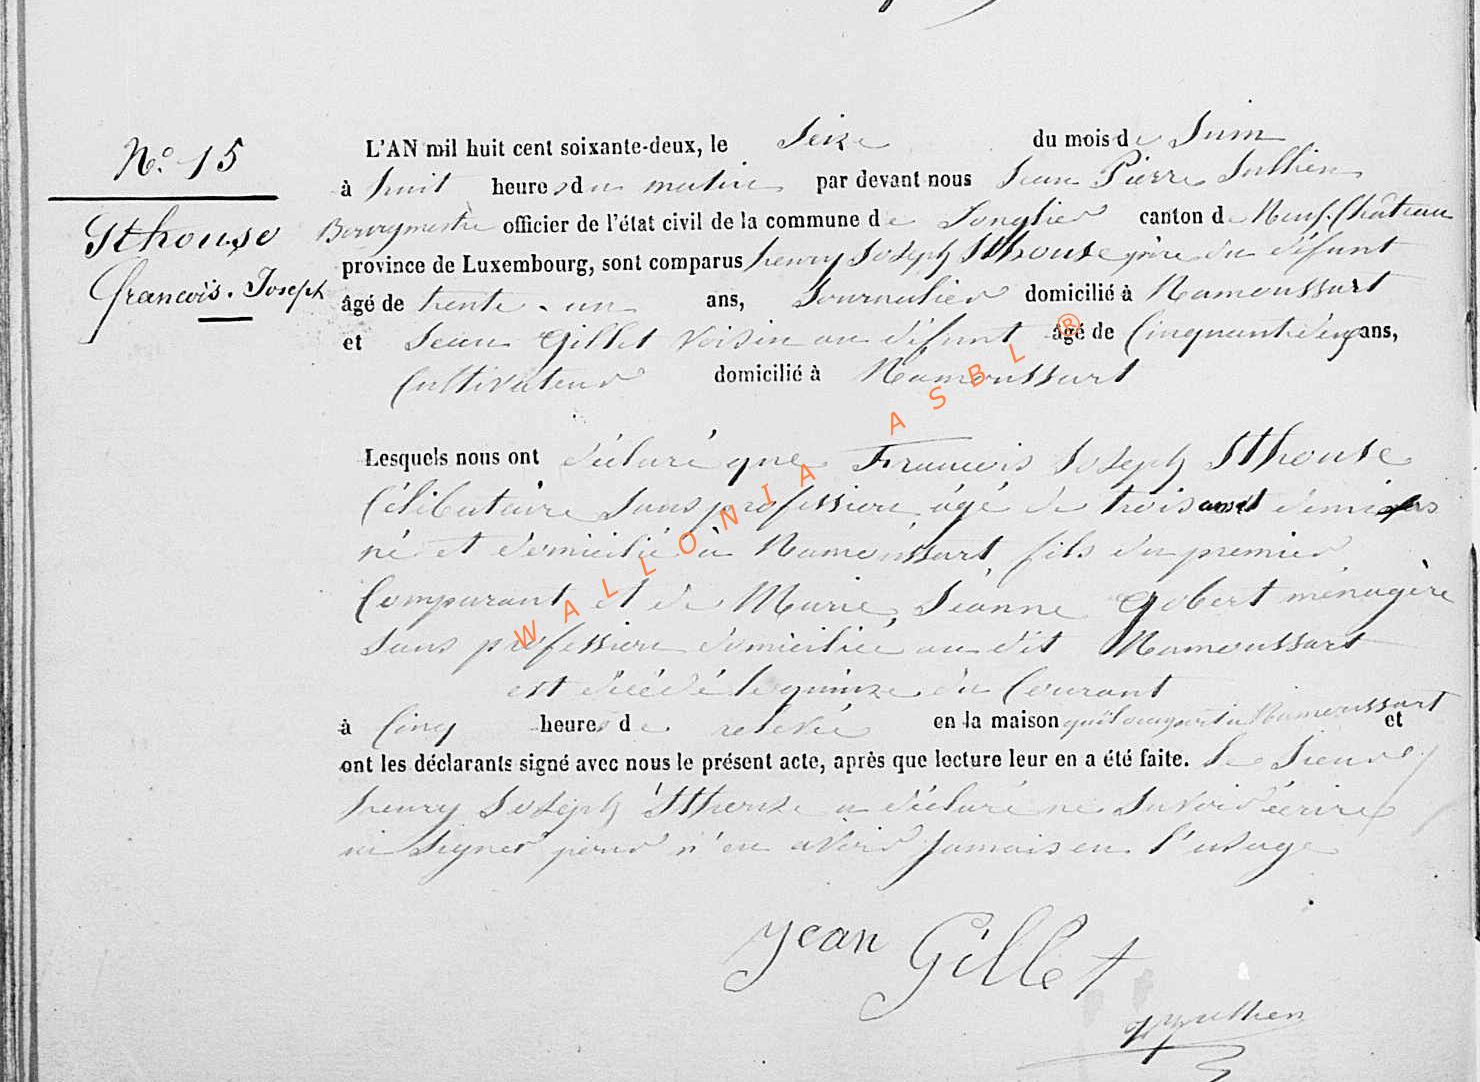 N.º 15
Sthouse
François. Joseph
L'AN mil huit cent soixante-deux, le Seize du mois de Juin
à huit heures du matin par devant nous Jean Pierre Jullien
Bourgmestre officier de l'état civil de la commune de Longlier canton de Neuf.Château
province de Luxembourg, sont comparus henry Joseph Sthouse père du défunt
âgé de trente-un ans, Journalier domicilié à Namoussart
et Jean Gillet voisin au défunt âgé de Cinquante deux ans,
Cultivateur domicilié à Namoussart
Lesquels nous ont déclaré que Francois Joseph Sthouse
Célibataire Sans profession âgé de trois ans et demi
né et domicilié à Namoussart fils du premier
Comparant et de Marie Jeanne Gobert ménagère
Sans profession domiciliée au dit Namoussart
est décédé le quinze du Courant
à Cinq heures de relevée en la maison qu'il occupait à Namoussart et
ont les déclarants signé avec nous le présent acte, après que lecture leur en a été faite. Le Sieur
henry Joseph Sthouse a déclaré ne Savoir écrire
ni Signer pour n'en avoir Jamais eu l'usage
Jean Gillet
JPJullien
WALLONIA ASBL ®